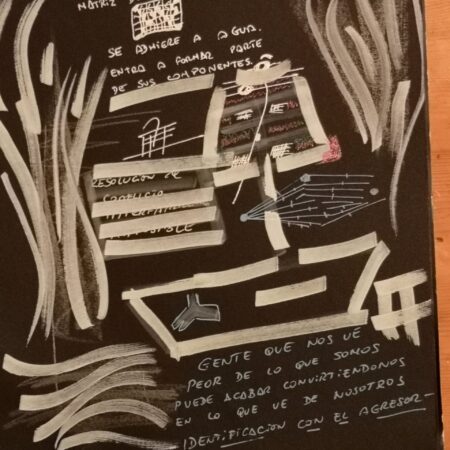 MATRIZ
SE ADHIERE A AGUA.
ENTRA A FORMAR PARTE
DE SUS COMPONENTES.
RESOLUCIÓN DE
CONFLICTO
GENTE QUE NOS VE
PEOR DE LO QUE SOMOS
PUEDE ACABAR CONVIRTIÉNDONOS
EN LO QUE VE DE NOSOTROS
IDENTIFICACION CON EL AGRESOR-